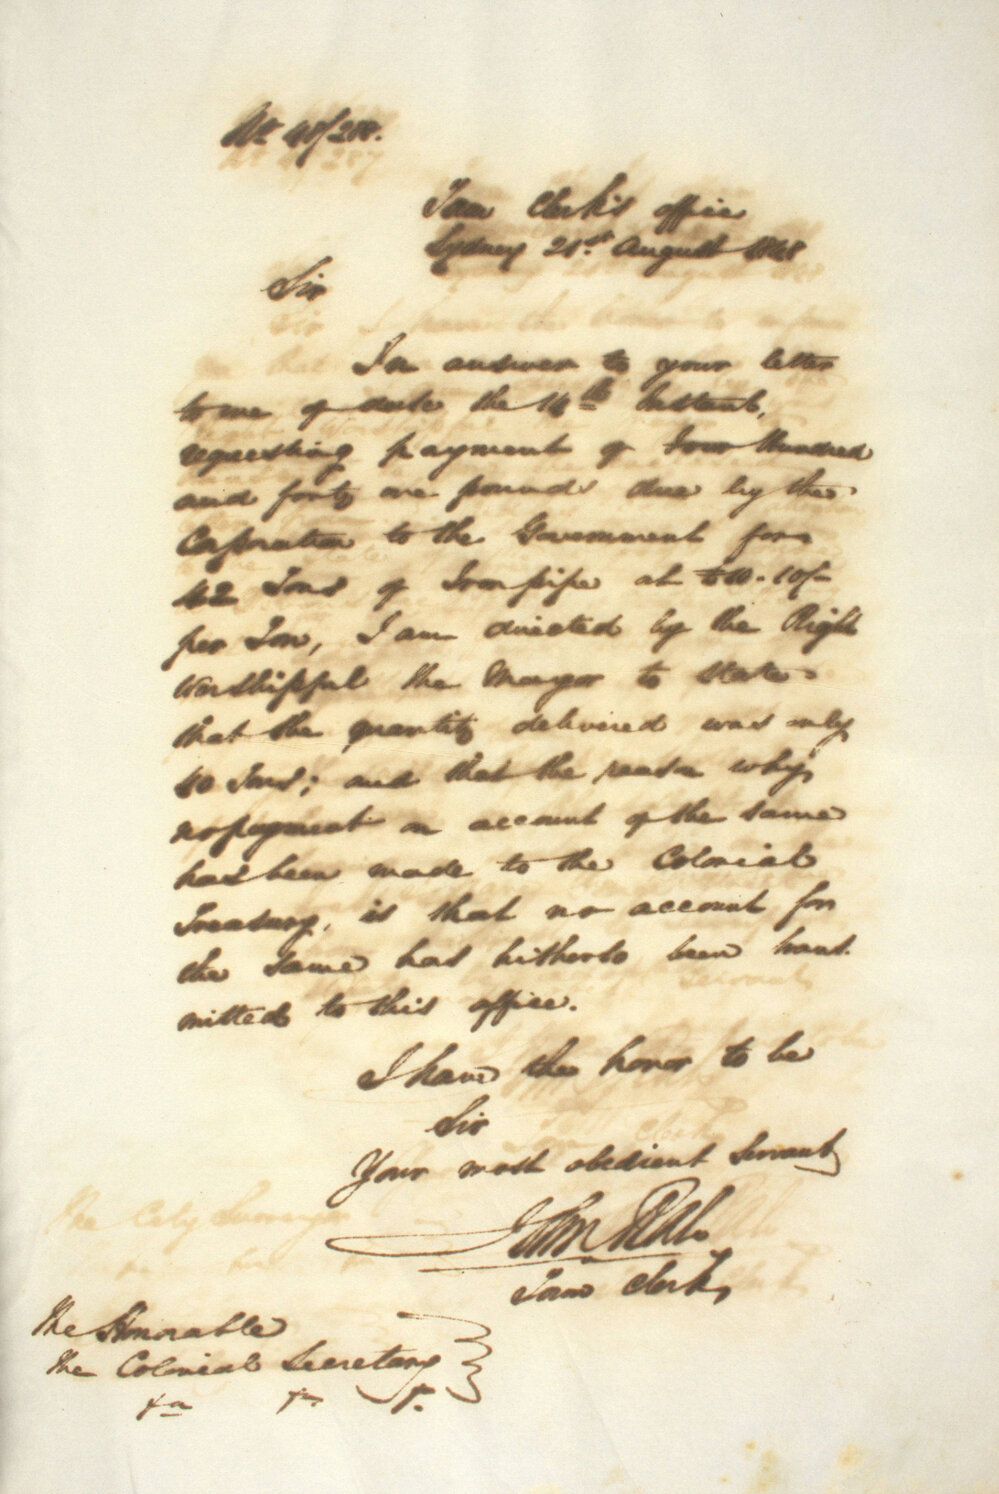 No 48/288.
Town Clerk's office
Sydney 21st August 1848
Sir
In answer to your letter
to me of date the 14th Instant,
requesting payment of Four Hundred
and forty one pounds due by the
Corporation to the Government for
42 Tons of Iron pipe at £10.10/-
per Ton, I am directed by the Right
Worshipful the Mayor to state
that the quantity delivered was only
40 Tons; and that the reason why
no payment on account of the same
has been made to the Colonial
Treasury, is that no account for
the same has hitherto been trans
mitted to this office.
I have the honor to be
Sir
Your most obedient Servant
John
Town Clerk
The Honorable
the Colonial Secretary